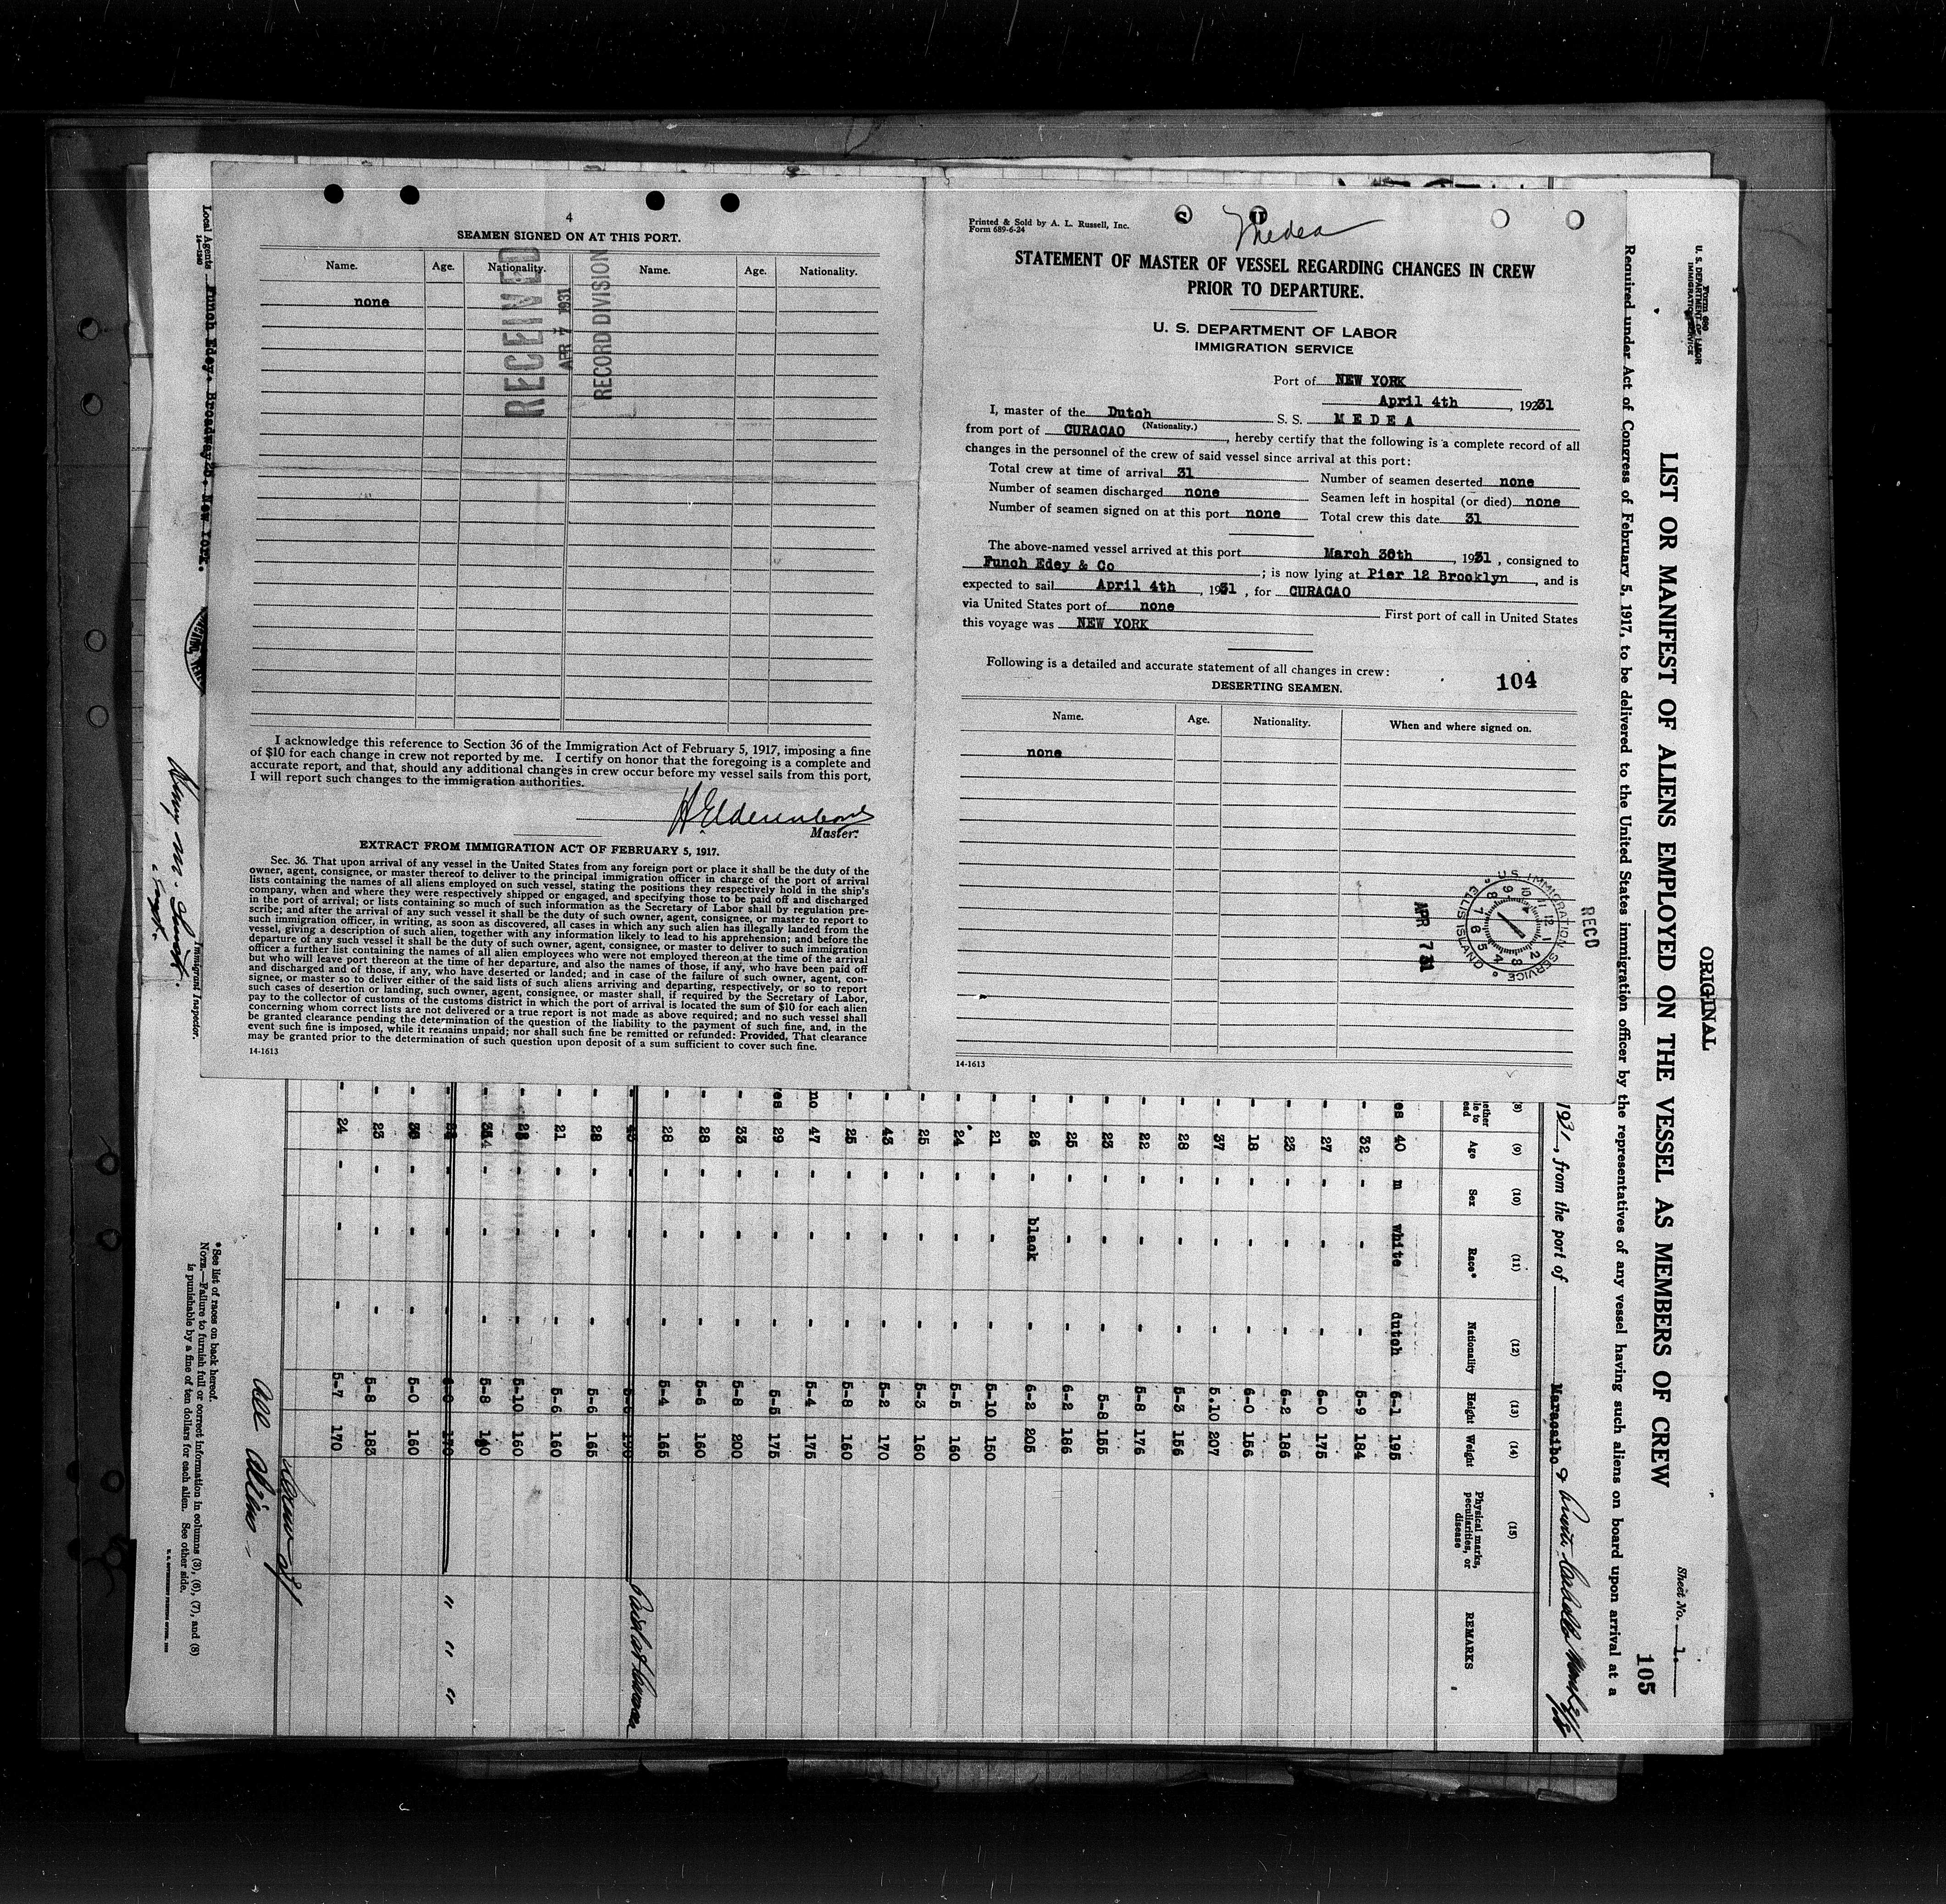 4
SEAMEN SIGNED ON AT THIS PORT.
Name. Age. Nationality. Name. Age. Nationality.
none
RECEIVED
APR 7 1931
RECORD DIVISION
I acknowledge this reference to Section 36 of the Immigration Act of February 5, 1917, imposing a fine
of $10 for each change in crew not reported by me. I certify on honor that the foregoing is a complete and
accurate report, and that, should any additional changes in crew occur before my vessel sails from this port,
I will report such changes to the immigration authorities.
Master.
EXTRACT FROM IMMIGRATION ACT OF FEBRUARY 5, 1917.
Sec. 36. That upon arrival of any vessel in the United States from any foreign port or place it shall be the duty of the
owner, agent, consignee, or master thereof to deliver to the principal immigration officer in charge of the port of arrival
lists containing the names of all aliens employed on such vessel, stating the positions they respectively hold in the ship's
company, when and where they were respectively shipped or engaged, and specifying those to be paid off and discharged
in the port of arrival; or lists containing so much of such information as the Secretary of Labor shall by regulation pre-
scribe; and after the arrival of any such vessel it shall be the duty of such owner, agent, consignee, or master to report to
such immigration officer, in writing, as soon as discovered, all cases in which any such alien has illegally landed from the
vessel, giving a description of such alien, together with any information likely to lead to his apprehension; and before the
departure of any such vessel it shall be the duty of such owner, agent, consignee, or master to deliver to such immigration
officer a further list containing the names of all alien employees who were not employed thereon at the time of the arrival
but who will leave port thereon at the time of her departure, and also the names of those, if any, who have been paid off
and discharged and of those, if any, who have deserted or landed; and in case of the failure of such owner, agent, con-
signee, or master so to deliver either of the said lists of such aliens arriving and departing, respectively, or so to report
such cases of desertion or landing, such owner, agent, consignee, or master shall, if required by the Secretary of Labor,
pay to the collector of customs of the customs district in which the port of arrival is located the sum of $10 for each alien
concerning whom correct lists are not delivered or a true report is not made as above required; and no such vessel shall
be granted clearance pending the determination of the question of the liability to the payment of such fine, and, in the
event such fine is imposed, while it remains unpaid; nor shall such fine be remitted or refunded: Provided, That clearance
may be granted prior to the determination of such question upon deposit of a sum sufficient to cover such fine.
14-1613
Printed & Sold by A. L. Russell, Inc.
Form 689-6-24
Medea
STATEMENT OF MASTER OF VESSEL REGARDING CHANGES IN CREW
PRIOR TO DEPARTURE.
U. S. DEPARTMENT OF LABOR
IMMIGRATION SERVICE
Port of NEW YORK
April 4th, 1931
I, master of the Dutch S. S. MEDEA
(Nationality.)
from port of CURACAO, hereby certify that the following is a complete record of all
changes in the personnel of the crew of said vessel since arrival at this port:
Total crew at time of arrival 31 Number of seamen deserted none
Number of seamen discharged none Seamen left in hospital (or died) none
Number of seamen signed on at this port none Total crew this date 31
The above-named vessel arrived at this port March 30th, 1931, consigned to
Funch Edey & Co; is now lying at Pier 12 Brooklyn, and is
expected to sail April 4th, 1931, for CURACAO
via United States port of none First port of call in United States
this voyage was NEW YORK
Following is a detailed and accurate statement of all changes in crew:
104
DESERTING SEAMEN.
Name. Age. Nationality. When and where signed on.
none
U.S. IMMIGRATION SERVICE ELLIS ISLAND
RECD
APR 7 31
14-1613
Form 689
U. S. DEPARTMENT OF LABOR
IMMIGRATION SERVICE
ORIGINAL
Sheet No. 1.
105
LIST OR MANIFEST OF ALIENS EMPLOYED ON THE VESSEL AS MEMBERS OF CREW
Required under Act of Congress of February 5, 1917, to be delivered to the United States immigration officer by the representatives of any vessel having such aliens on board upon arrival at a
1931, from the port of Maracaibo &
(8) (9) (10) (11) (12) (13) (14) (15)
Age Sex Race* Nationality Height Weight Physical marks, peculiarities, or disease REMARKS
es 40 m white dutch 6-1 195
- 32 - - - 5-9 184
- 27 - - - 6-0 175
- 23 - - - 6-2 186
- 18 - - - 6-0 156
- 37 - - - 5.10 207
- 28 - - - 5-3 156
- 22 - - - 5-8 176
- 23 - - - 5-8 155
- 25 - - - 6-2 186
- 26 - black - 6-2 205
- 21 - - - 5-10 150
- 24 - - - 5-5 160
- 25 - - - 5-3 160
- 43 - - - 5-2 170
- 25 - - - 5-8 160
no 47 - - - 5-4 175
yes 29 - - - 5-5 175
- 33 - - - 5-8 200
- 28 - - - 5-6 160
- 28 - - - 5-4 165
- 28 - - - 5-6 165
- 21 - - - 5-6 160
- 28 - - - 5-10 160
- 34 - - - 5-8 140
" " "
- 30 - - - 5-0 160
- 23 - - - 5-8 183
- 24 - - - 5-7 170
All Aliens
*See list of races on back hereof.
NOTE.—Failure to furnish full or correct information in columns (3), (6), (7), and (8)
is punishable by a fine of ten dollars for each alien. See other side.
Local Agents Funch Edey. Broadway 25. New York.
14-1240
Immigrant Inspector.